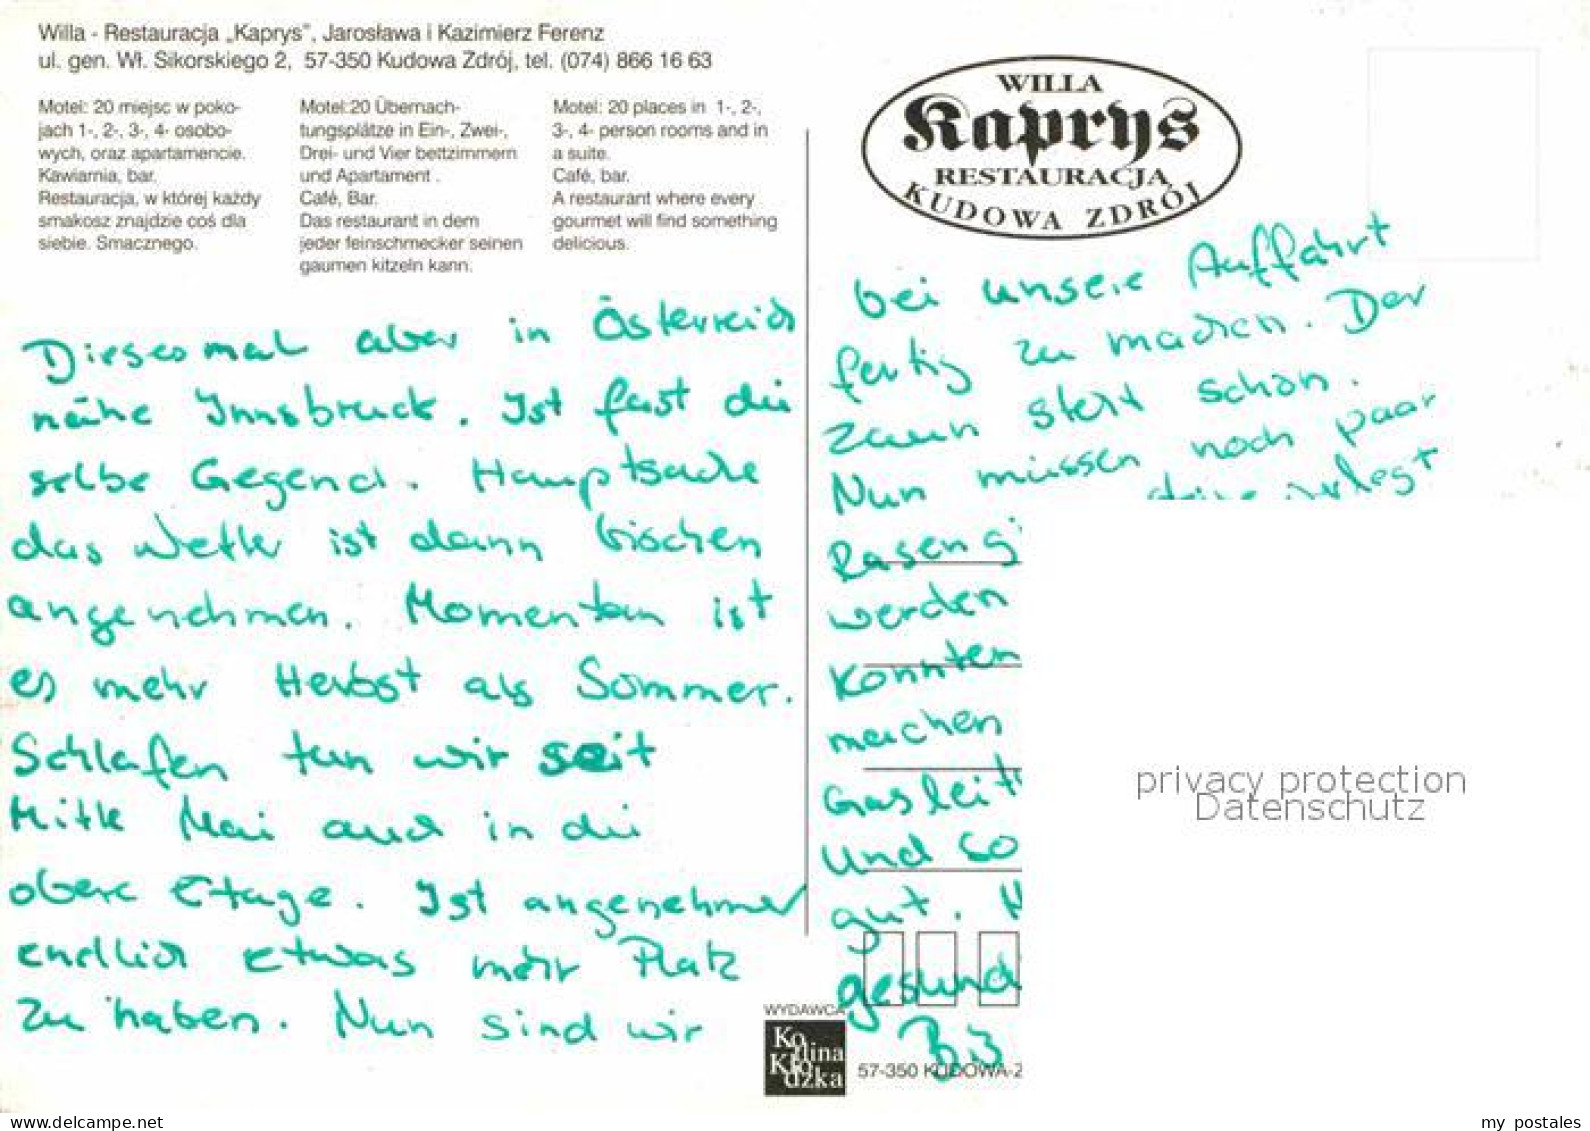 Willa - Restauracja „Kaprys”, Jarosława i Kazimierz Ferenz
ul. gen. Wł. Sikorskiego 2, 57-350 Kudowa Zdrój, tel. (074) 866 16 63
Motel: 20 miejsc w poko-
jach 1-, 2-, 3-, 4- osobo-
wych, oraz apartamencie.
Kawiarnia, bar.
Restauracja, w której każdy
smakosz znajdzie coś dla
siebie. Smacznego.
Motel:20 Übernach-
tungsplätze in Ein-, Zwei-,
Drei- und Vier bettzimmern
und Apartament .
Café, Bar.
Das restaurant in dem
jeder feinschmecker seinen
gaumen kitzeln kann.
Motel: 20 places in 1-, 2-,
3-, 4- person rooms and in
a suite.
Café, bar.
A restaurant where every
gourmet will find something
delicious.
WILLA
Kaprys
RESTAURACJA
KUDOWA ZDRÓJ
Diesesmal aber in Österreich
nähe Innsbruck. Ist fast die
selbe Gegend. Hauptsache
das Wetter ist dann bischen
angenehmen. Momentan ist
es mehr Herbst als Sommer.
Schlafen tun wir seit
Mitte Mai auch in die
obere Etage. Ist angenehmer
endlich etwas mehr Platz
zu haben. Nun sind wir
bei unsere Auffahrt
fertig zu machen. Der
Zaun steht schon.
Nun müssen noch paar
verlegt
Raseng
werden
Konnten
machen
Gasleit
und so
gut. H
gesund
Bis
privacy protection
Datenschutz
WYDAWCA
Kotlina
Kłodzka
57-350 KUDOWA-Z
my postales
www.delcampe.net